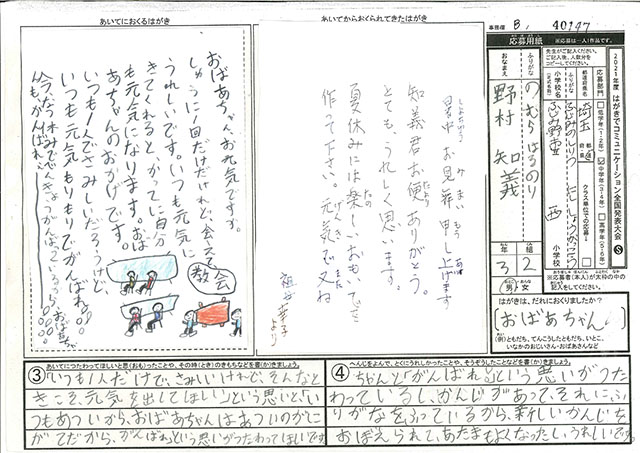 あいてにおくるはがき
おばあちゃんお元気です。
しゅうに1回だけだけれど、会えて
うれしいです。いつも元気に
きてくれるとかってに自分
も元気になります。おば
あちゃんのおかげです。
いつも1人でさみしいだろうけど、
いつも元気もりもりでがんばれ。
教会
あいてからおくられてきたはがき
暑中お見舞申し上げます
知義君お便りありがとう。
とても、うれしく思います。
夏休みには楽しいおもいでを
作って下さい。元気で又ね
より
事務欄 B、40147
応募用紙
※応募は一人1作品です。
ふりがな
のむらはるのり
おなまえ
野村知義
3年
2組
男・女
2021年度 はがきでコミュニケーション全国発表大会
応募部門
低学年(1・2年)
中学年(3・4年)
高学年(5・6年)
都道府県名
埼玉
クラス単位での応募
小学校名
ふじみ野市
西
小学校
※応募者(本人)が太枠の中の
記入をしてください。
はがきは、だれにおくりましたか?
おばあちゃん
(例)ともだち、てんこうしたともだち、いとこ、
いなかのおじいさん・おばあさんなど
③
あいてにつたわってほしいと思(おも)ったことや、その時(とき)のきもちなどを書(か)きましょう。
「いつも1人だけで、さみしいけれど、そんなと
きこそ、元気を出してほしい」という思いと「い
つもあついから、おばあちゃんはあついのがに
がてだから、がんばれ」という思いがつたわってほしいです
④
へんじをよんで、とくにうれしかったことや、そうぞうしたことなどを書(か)きましょう。
ちゃんと「がんばれ」という思いがつた
わっているし、かんじがあって、それにふ
りがなをふっているから、新しいかんじを
おぼえられて、あたまもよくなったし、うれしいです。